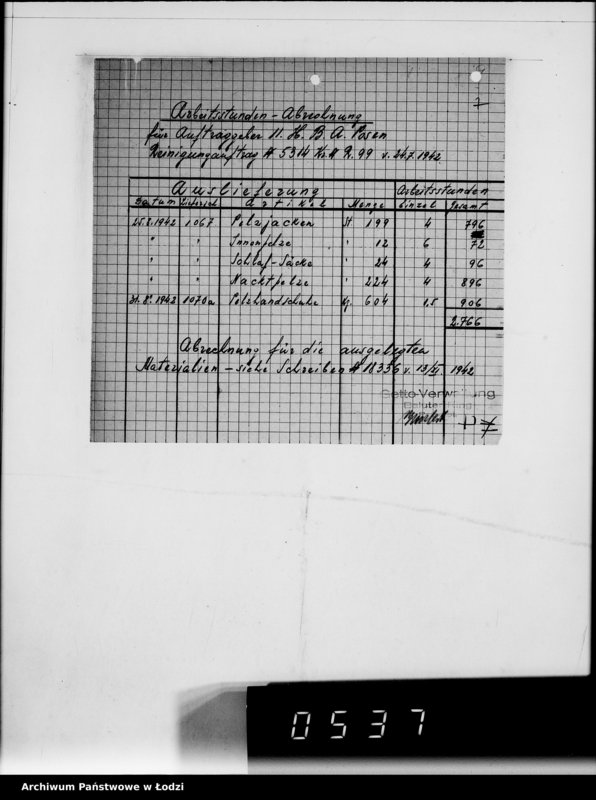 7
Arbeitsstunden-Abrechnung
für Auftraggeber 11. H. B. A. Posen
Reinigungauftrag # 5314 Kr# R. 99 v. 24.7.1942
Auslieferung Arbeitsstunden
Datum Liefersch Artikel Menge Einzel Gesamt
25.8.1942 1067 Pelzjacken St 199 4 796
" " Innenpelze " 12 6 72
" " Schlaf-Säcke " 24 4 96
" " Nachtpelze " 224 4 896
31.8.1942 1070a Pelzhandschuhe 604 1.5 906
2.766
Abrechnung für die ausgelegten
Materialien - siehe Schreiben # 18336 v. 13/XI 1942
Getto-Verwaltung
0537
Archiwum Państwowe w Łodzi